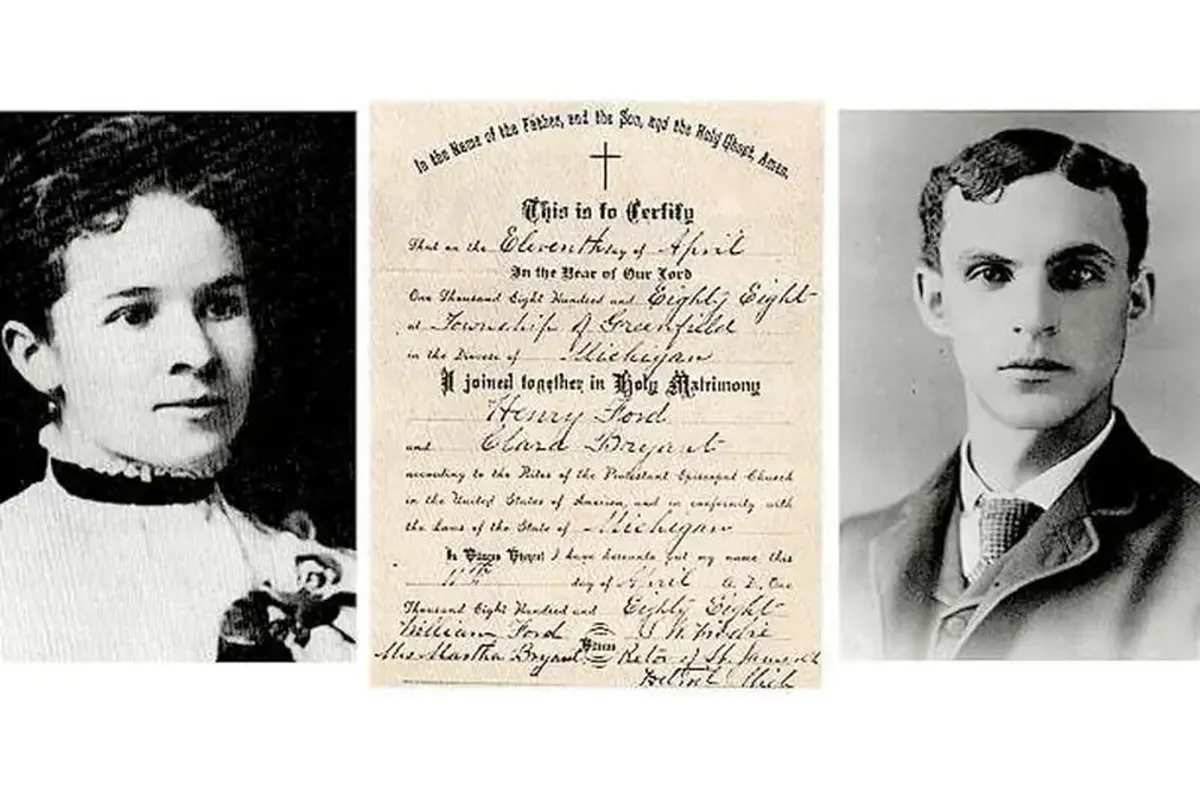 In the Name of the Father, and the Son, and the Holy Ghost, Amen.
This is to Certify
That on the Eleventh day of April
In the Year of Our Lord
One Thousand Eight Hundred and Eighty Eight
at Township of Greenfield
in the Diocese of Michigan
I joined together in Holy Matrimony
Henry Ford
and Clara Bryant
according to the Rites of the Protestant Episcopal Church
in the United States of America, and in conformity with
the Laws of the State of Michigan
In Witness Whereof I have hereunto put my name this
11th day of April A. D., One
Thousand Eight Hundred and Eighty Eight
William Ford
Mrs Martha Bryant Rector of St. James ch
Detroit Mich